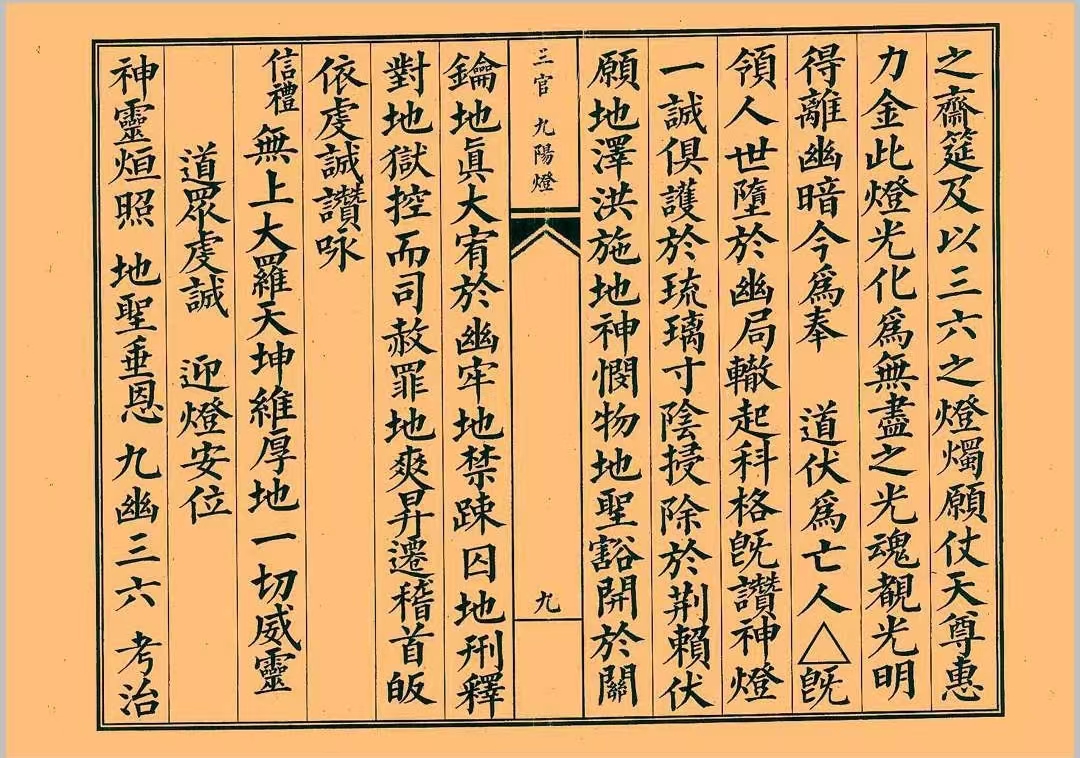 之齋筵及以三六之燈燭願仗天尊惠
力金此燈光化爲無盡之光魂覩光明
得離幽暗今爲奉　道伏爲亡人△旣
領人世墮於幽局轍起科格旣讚神燈
一誠俱護於琉璃寸陰掃除於荆賴伏
願地澤洪施地神憫物地聖豁開於關
三官 九陽燈 九
鑰地眞大宥於幽牢地禁踈囚地刑釋
對地獄控而司赦罪地爽昇遷稽首皈
依虔誠讚咏
信禮 無上大羅天坤維厚地一切威靈
道眾虔誠　迎燈安位
神靈烜照 地聖垂恩 九幽三六 考治